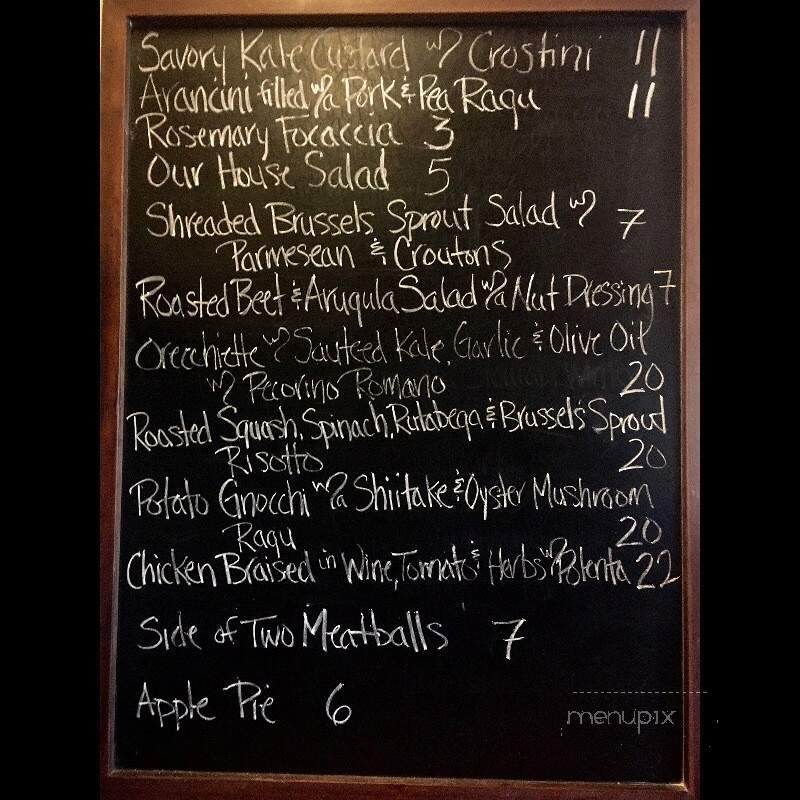 Savory Kale Custard w/ Crostini 11
Arancini filled w/a Pork & Pea Ragu 11
Rosemary Focaccia 3
Our House Salad 5
Shreaded Brussels Sprout Salad w/ 7
Parmesean & Croutons
Roasted Beet & Arugula Salad w/a Nut Dressing 7
Orecchiette w/ Sauteed Kale, Garlic & Olive Oil
w/ Pecorino Romano 20
Roasted Squash, Spinach, Rutabega & Brussels Sprout
Risotto 20
Potato Gnocchi w/a Shiitake & Oyster Mushroom
Ragu 20
Chicken Braised in Wine, Tomato & Herbs w/ Polenta 22
Side of Two Meatballs 7
Apple Pie 6
menupix